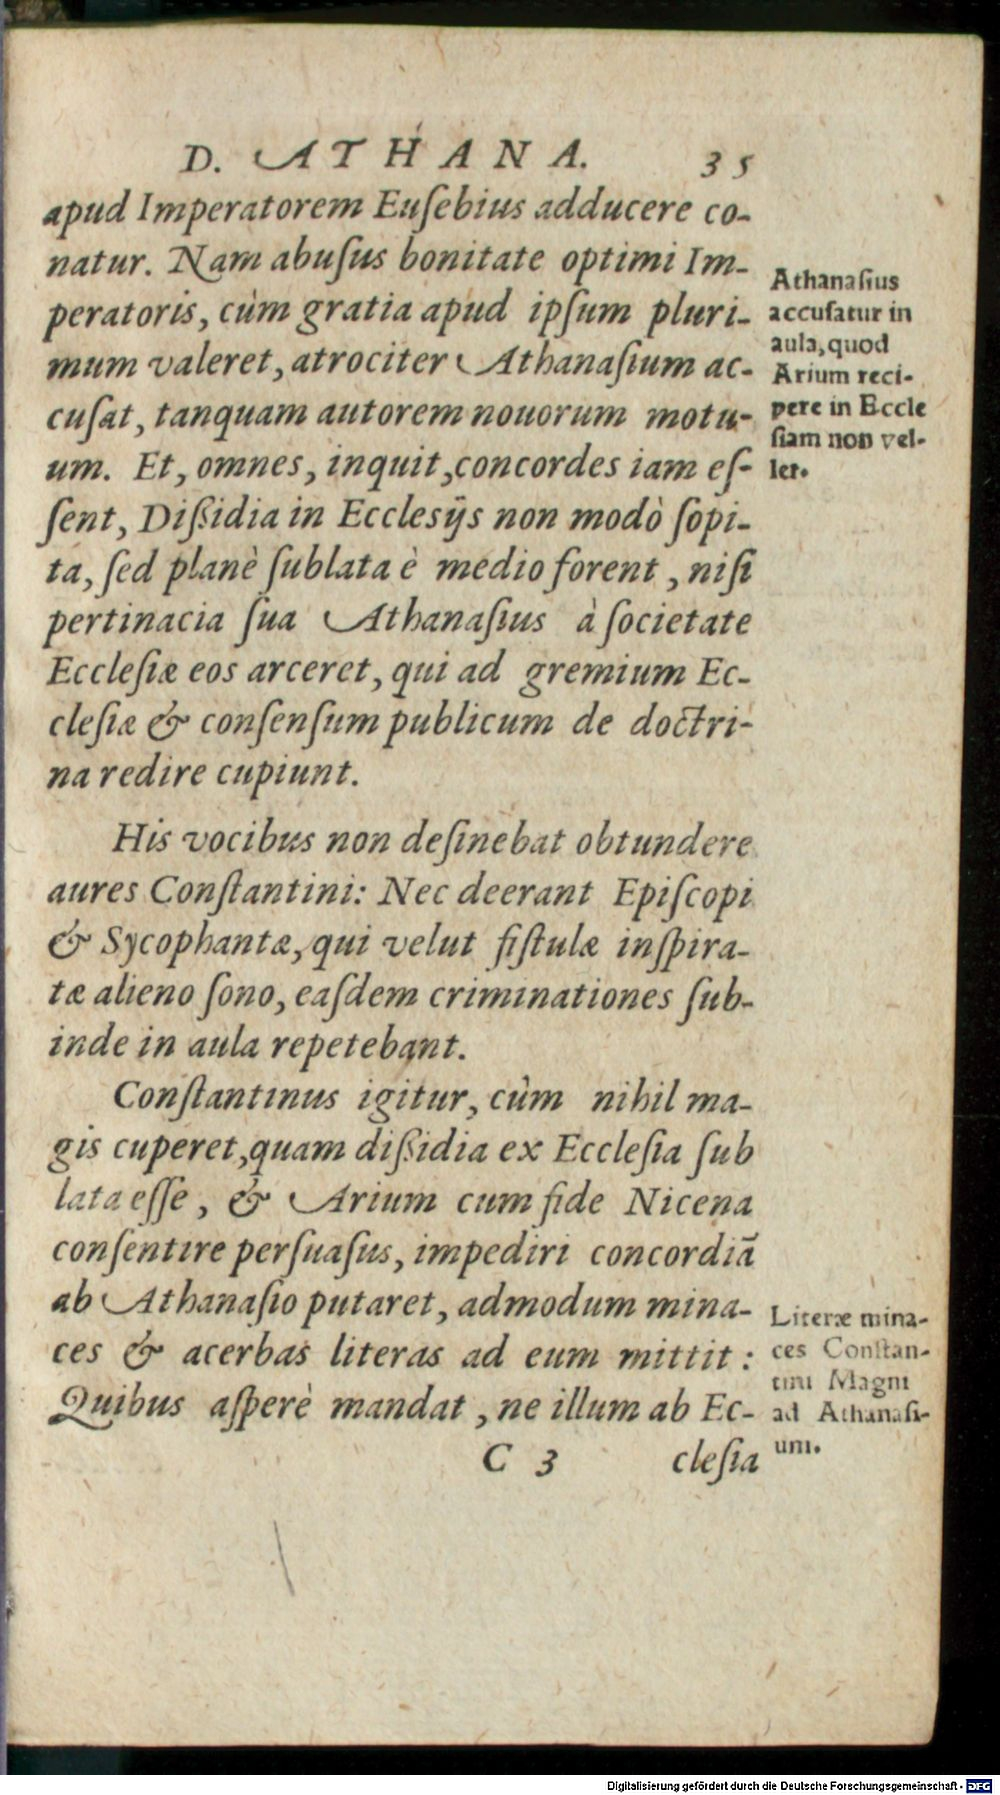 D. ATHANA. 35
apud Imperatorem Euſebius adducere co-
natur. Nam abuſus bonitate optimi Im-
peratoris, cùm gratia apud ipſum pluri-
mum valeret, atrociter Athanaſium ac-
cuſat, tanquam autorem nouorum motu-
um. Et, omnes, inquit, concordes iam eſ-
ſent, Diſſidia in Ecclesijs non modò ſopi-
ta, ſed planè ſublata è medio forent, niſi
pertinacia ſua Athanaſius à ſocietate
Eccleſiæ eos arceret, qui ad gremium Ec-
cleſiæ & conſenſum publicum de doctri-
na redire cupiunt.
Athanaſius
accuſatur in
aula, quod
Arium reci-
pere in Eccle
ſiam non vel-
let.
His vocibus non deſinebat obtundere
aures Conſtantini: Nec deerant Epiſcopi
& Sycophantæ, qui velut fiſtulæ inſpira-
tæ alieno ſono, eaſdem criminationes ſub-
inde in aula repetebant.
Conſtantinus igitur, cùm nihil ma-
gis cuperet, quam diſſidia ex Eccleſia ſub
lata eſſe, & Arium cum fide Nicena
conſentire perſuaſus, impediri concordiā
ab Athanaſio putaret, admodum mina-
ces & acerbas literas ad eum mittit:
Quibus aſperè mandat, ne illum ab Ec-
Literæ mina-
ces Conſtan-
tini Magni
ad Athanaſi-
um.
C 3 cleſia
Digitalisierung gefördert durch die Deutsche Forschungsgemeinschaft - DFG